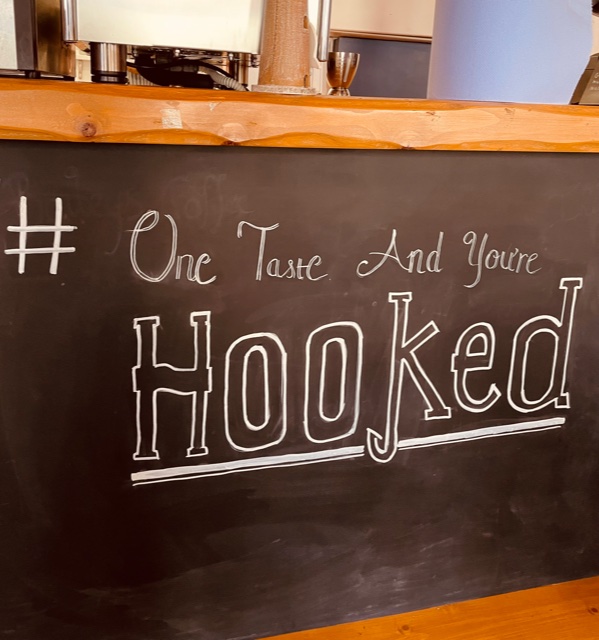 # One Taste And You're
Hooked